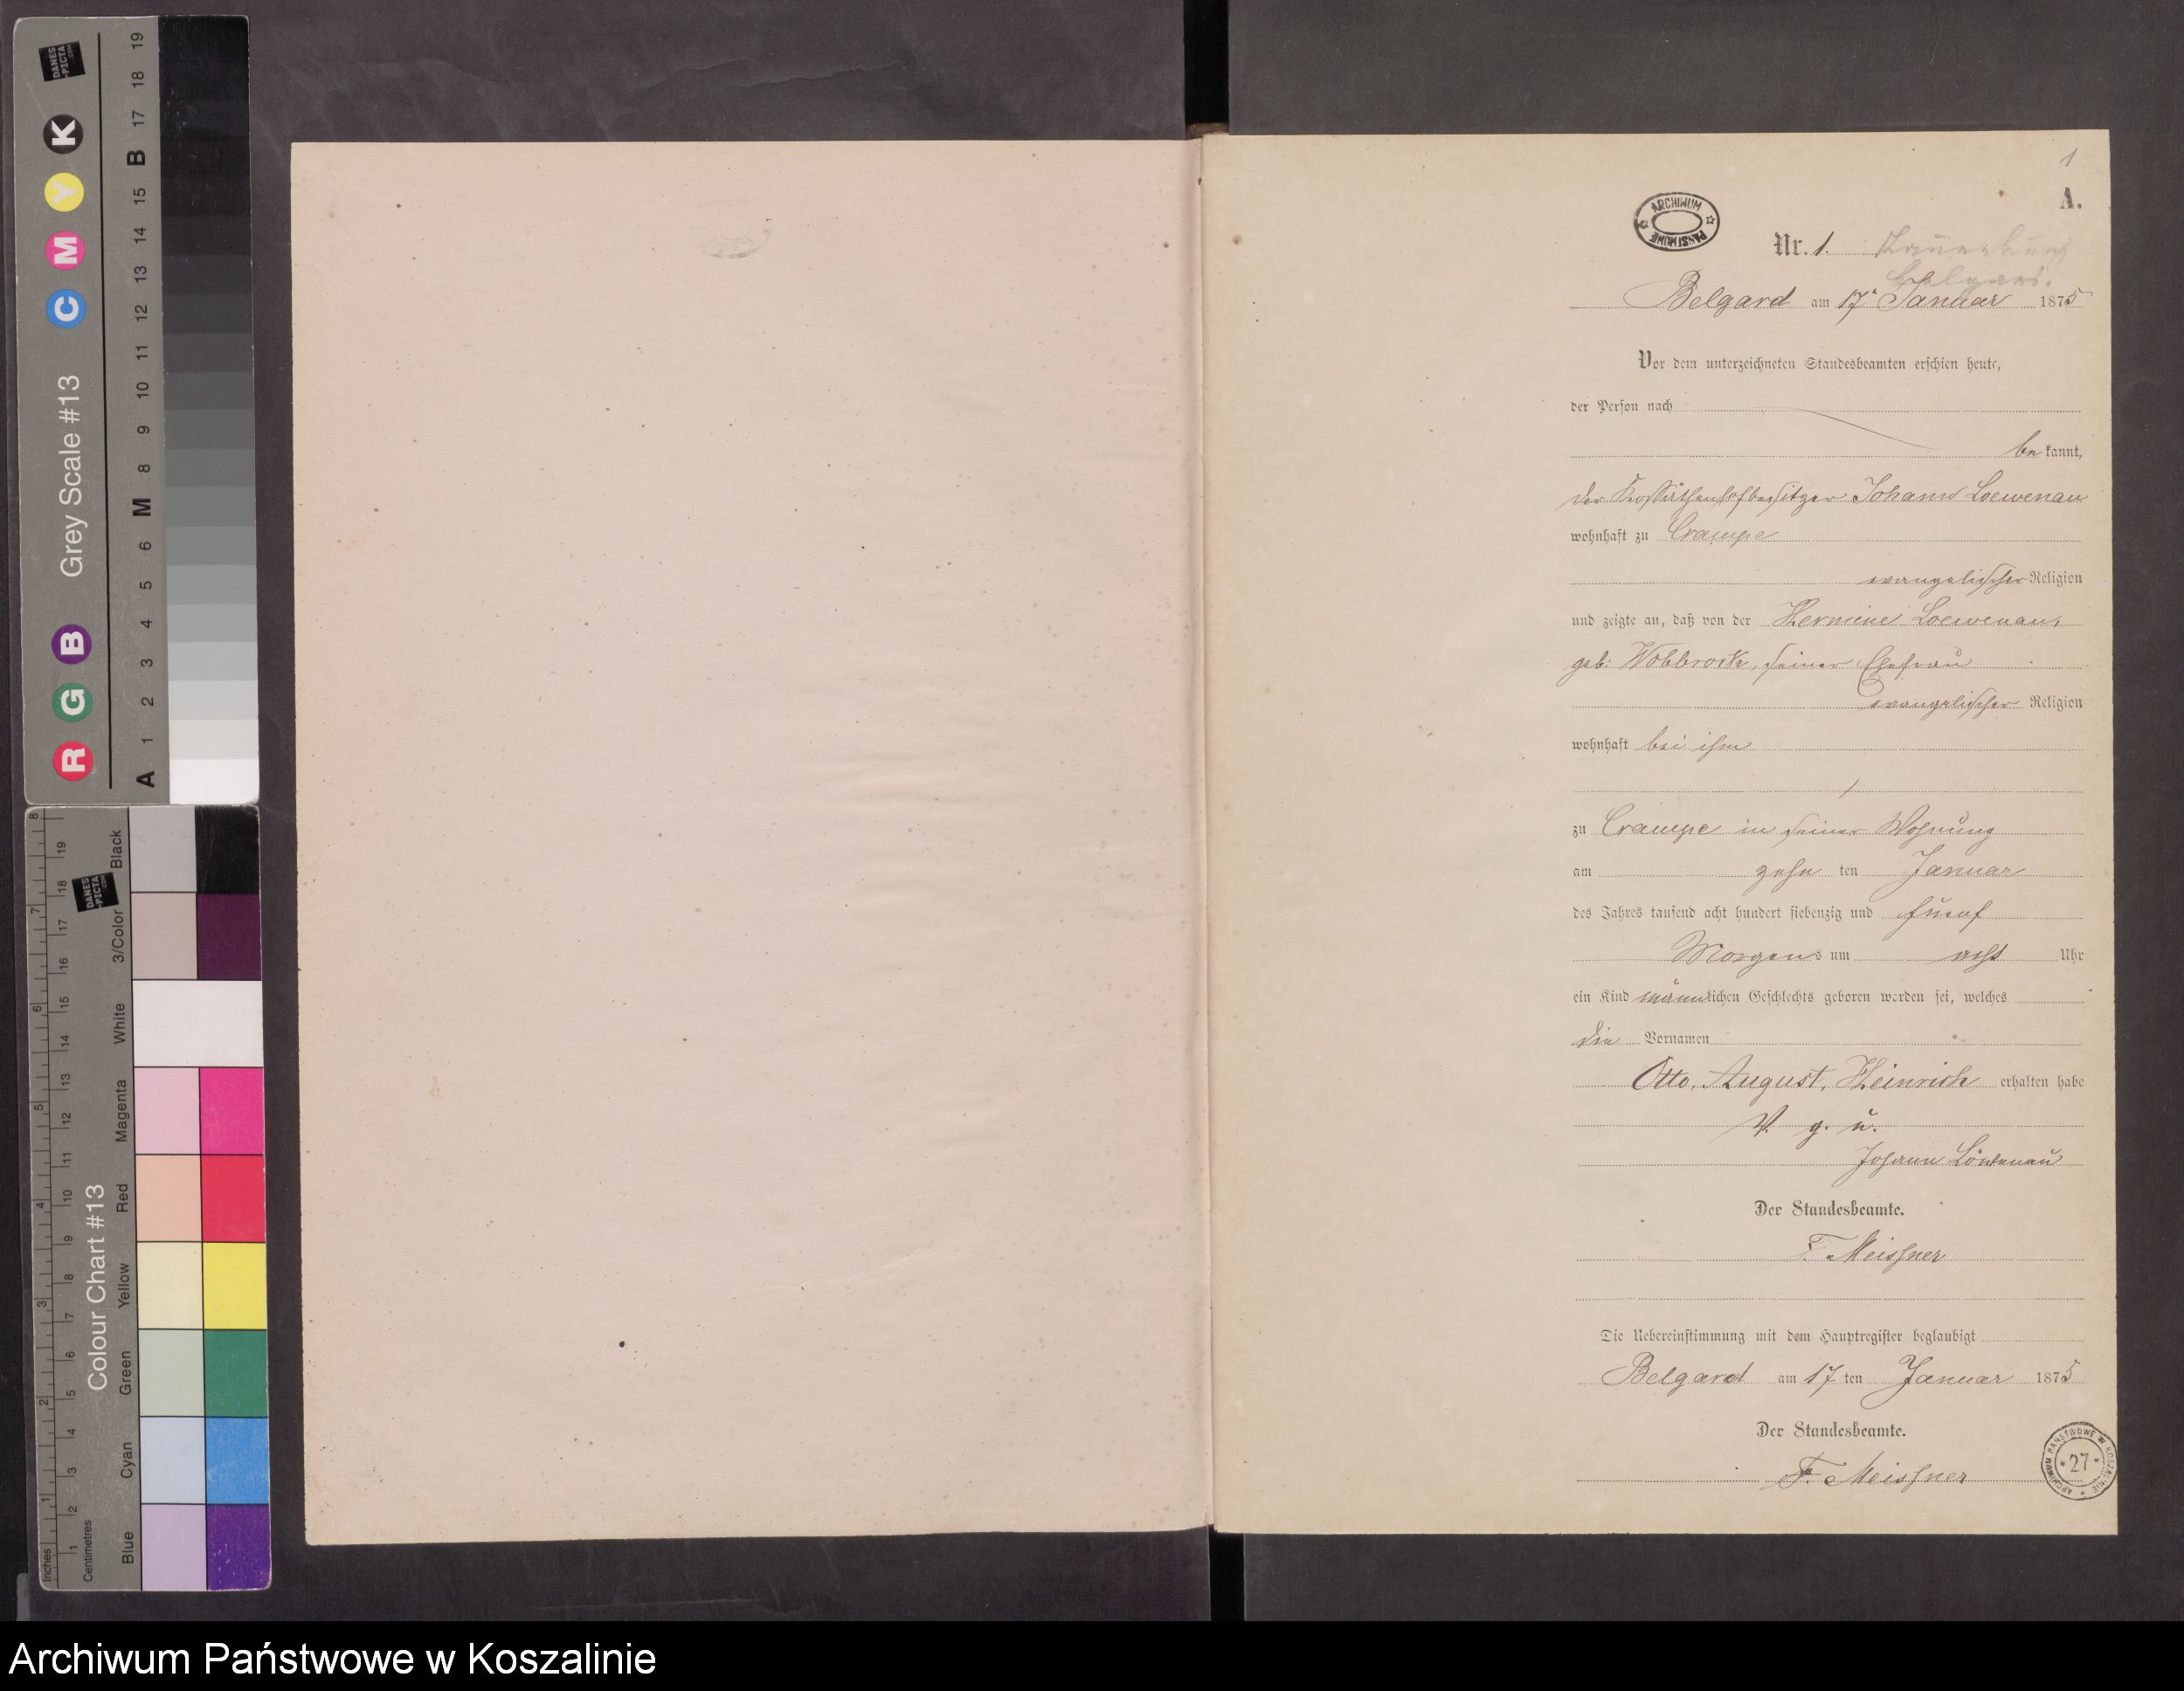 1
A.
ARCHIWUM PAŃSTWOWE
Nr. 1.
Belgard.
Belgard am 17ᵗ Januar 1875
Vor dem unterzeichneten Standesbeamten erschien heute,
der Person nach
be kannt,
der Kossäthenhofbesitzer Johann Loewenau
wohnhaft zu Crampe
evangelischer Religion
und zeigte an, daß von der Hermine Loewenau,
geb: Wobbrock, seiner Ehefrau
evangelischer Religion
wohnhaft bei ihm
zu Crampe in seiner Wohnung
am zehn ten Januar
des Jahres tausend acht hundert siebenzig und fuenf
Morgens um acht Uhr
ein Kind männlichen Geschlechts geboren worden sei, welches
die Vornamen
Otto, August, Heinrich erhalten habe
V. g. u.
Johann Löwenau
Der Standesbeamte.
F. Meissner
Die Uebereinstimmung mit dem Hauptregister beglaubigt
Belgard am 17 ten Januar 1875
Der Standesbeamte.
F. Meissner
ARCHIWUM PAŃSTWOWE W KOSZALINIE
* 27 *
DANES
-PICTA
.COM
Grey Scale #13
R G B C M Y K
A 1 2 3 4 5 6 M 8 9 10 11 12 13 14 15 B 17 18 19
DANES
-PICTA
.COM
Colour Chart #13
Inches 1 2 3 4 5 6 7 8
Centimetres 1 2 3 4 5 6 8 9 10 11 12 13 14 15 16 17 18 19
Blue Cyan Green Yellow Red Magenta White 3/Color Black
Archiwum Państwowe w Koszalinie